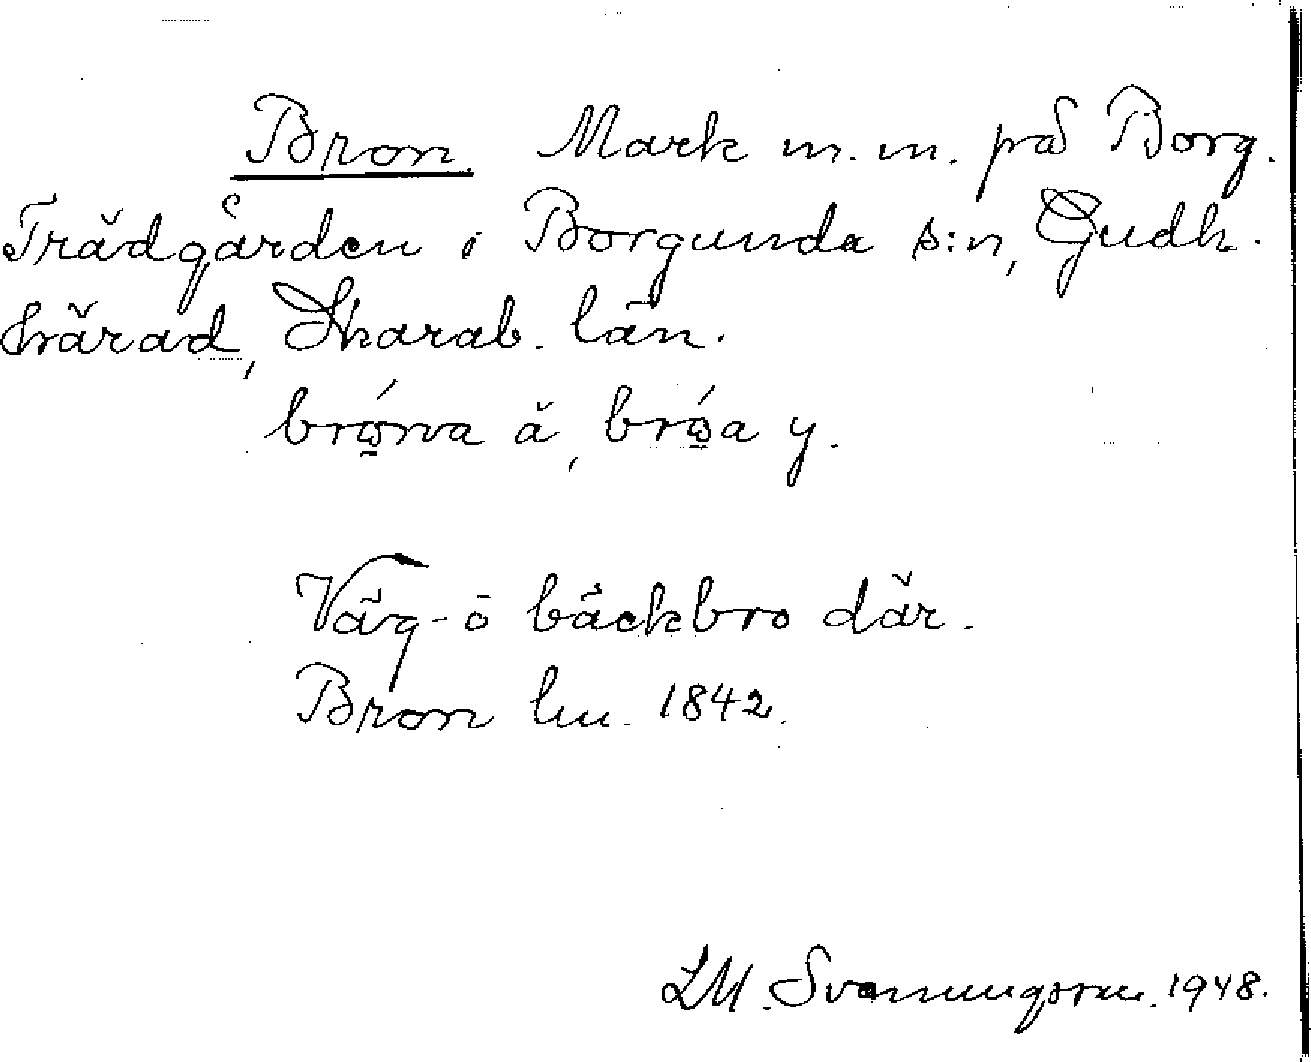 Bron. Mark m.m. på Borg.
Trädgården i Borgunda s:n, Gudh.
härad, Skarab. län.
bró̱na ä, bró̱a y.
Väg- o bäckbro där.
Bron lm. 1842.
LM. Svenungsson. 1948.